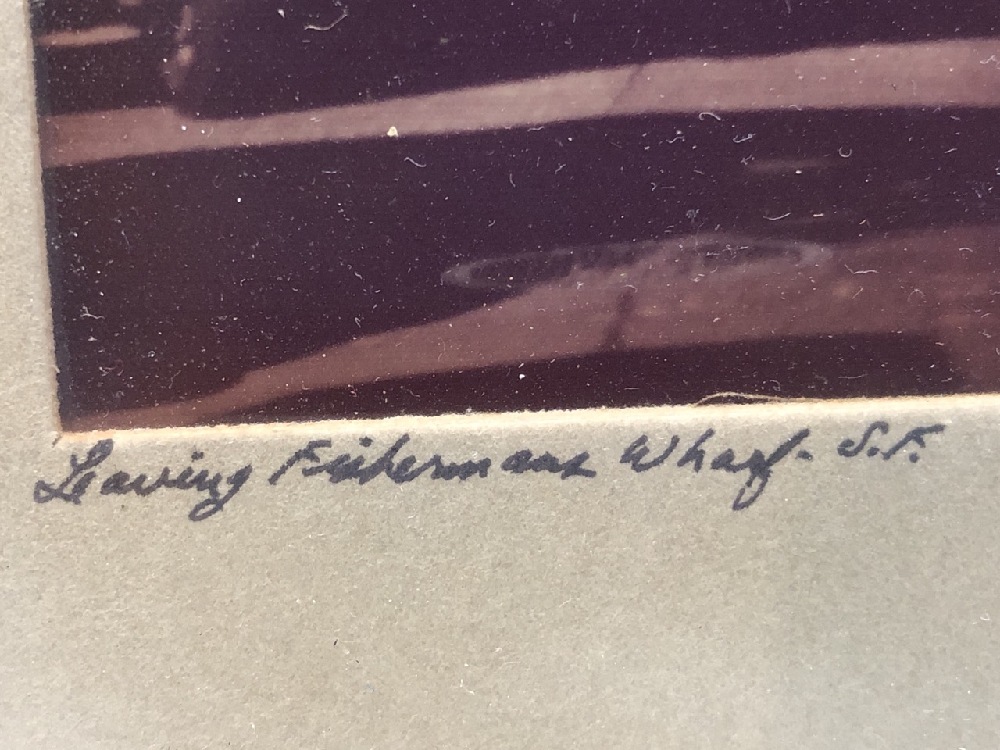 Leaving Fishermans Wharf - S.F.